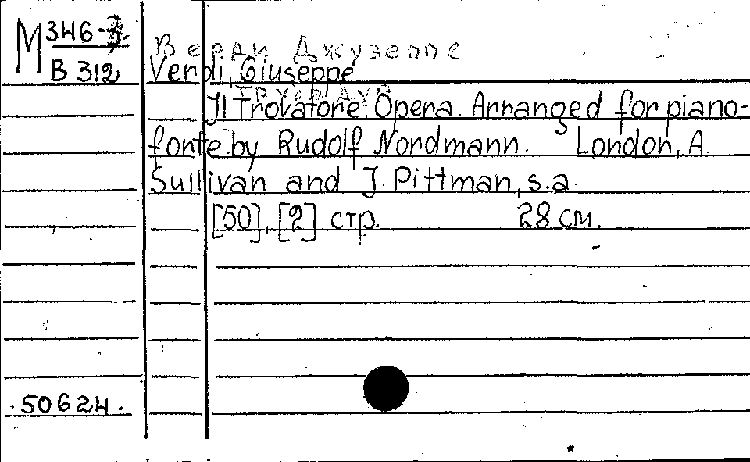 М 346-3
В 312
Верди Джузеппе
Verdi, Giuseppe
Il Trovatore Opera. Arranged for piano-
forte by Rudolf Nordmann. London, A.
Sullivan and J. Pittman, s.a.
[50], [2] стр. 28 см.
50624.